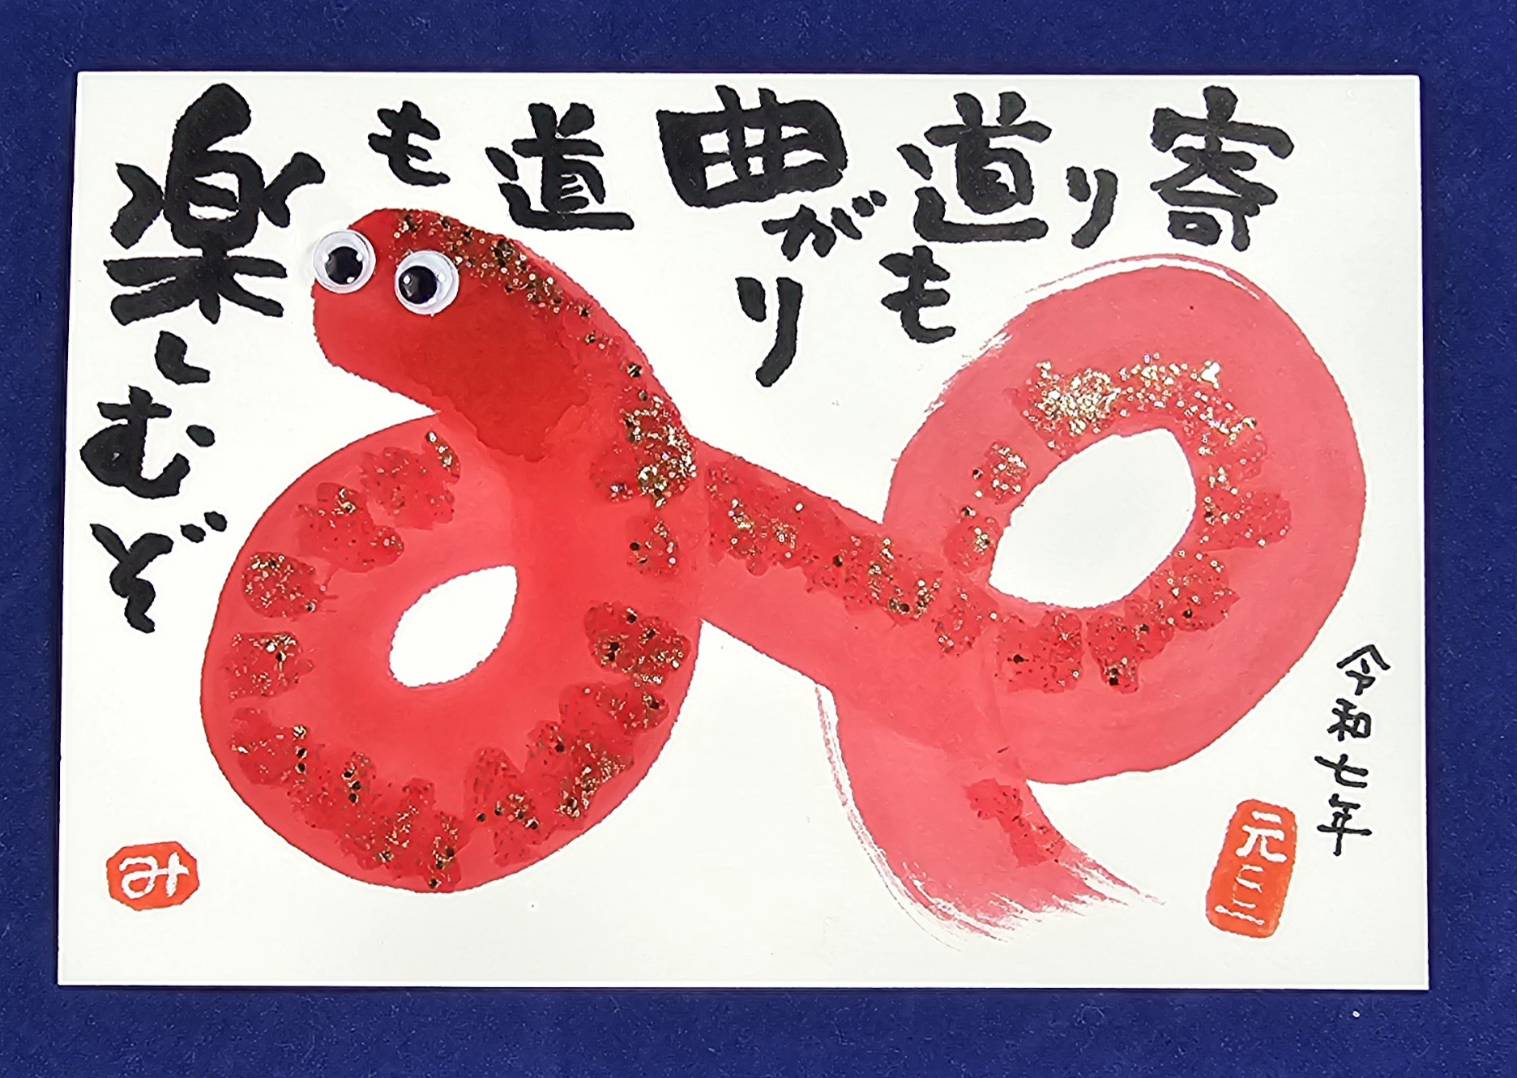 寄り道も
曲がり
道も
楽しむぞ
令和七年
元旦
み